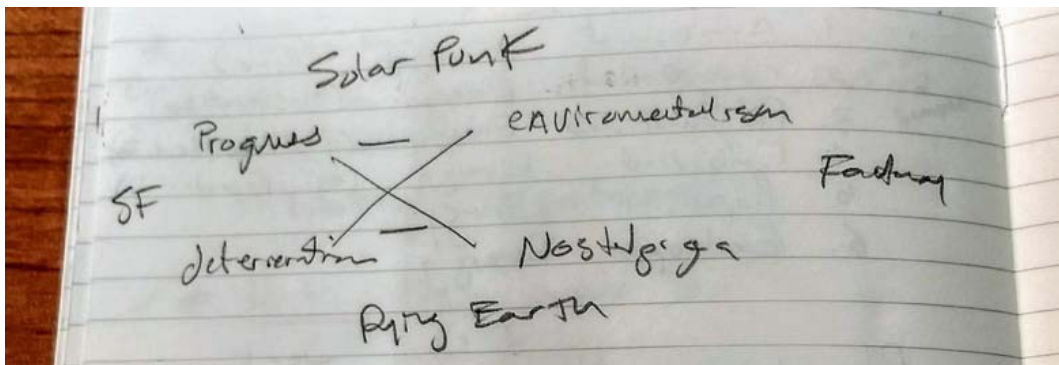 Solar Punk
Progress — enviromentalism
SF
deterioration — Nostalgiga
Dying Earth